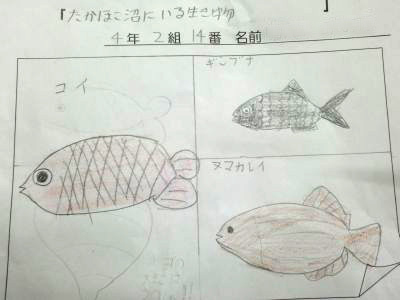 「たかほこ沼にいる生き物 」
4年 2組 14番 名前
コイ
ギンブナ
ヌマガレイ